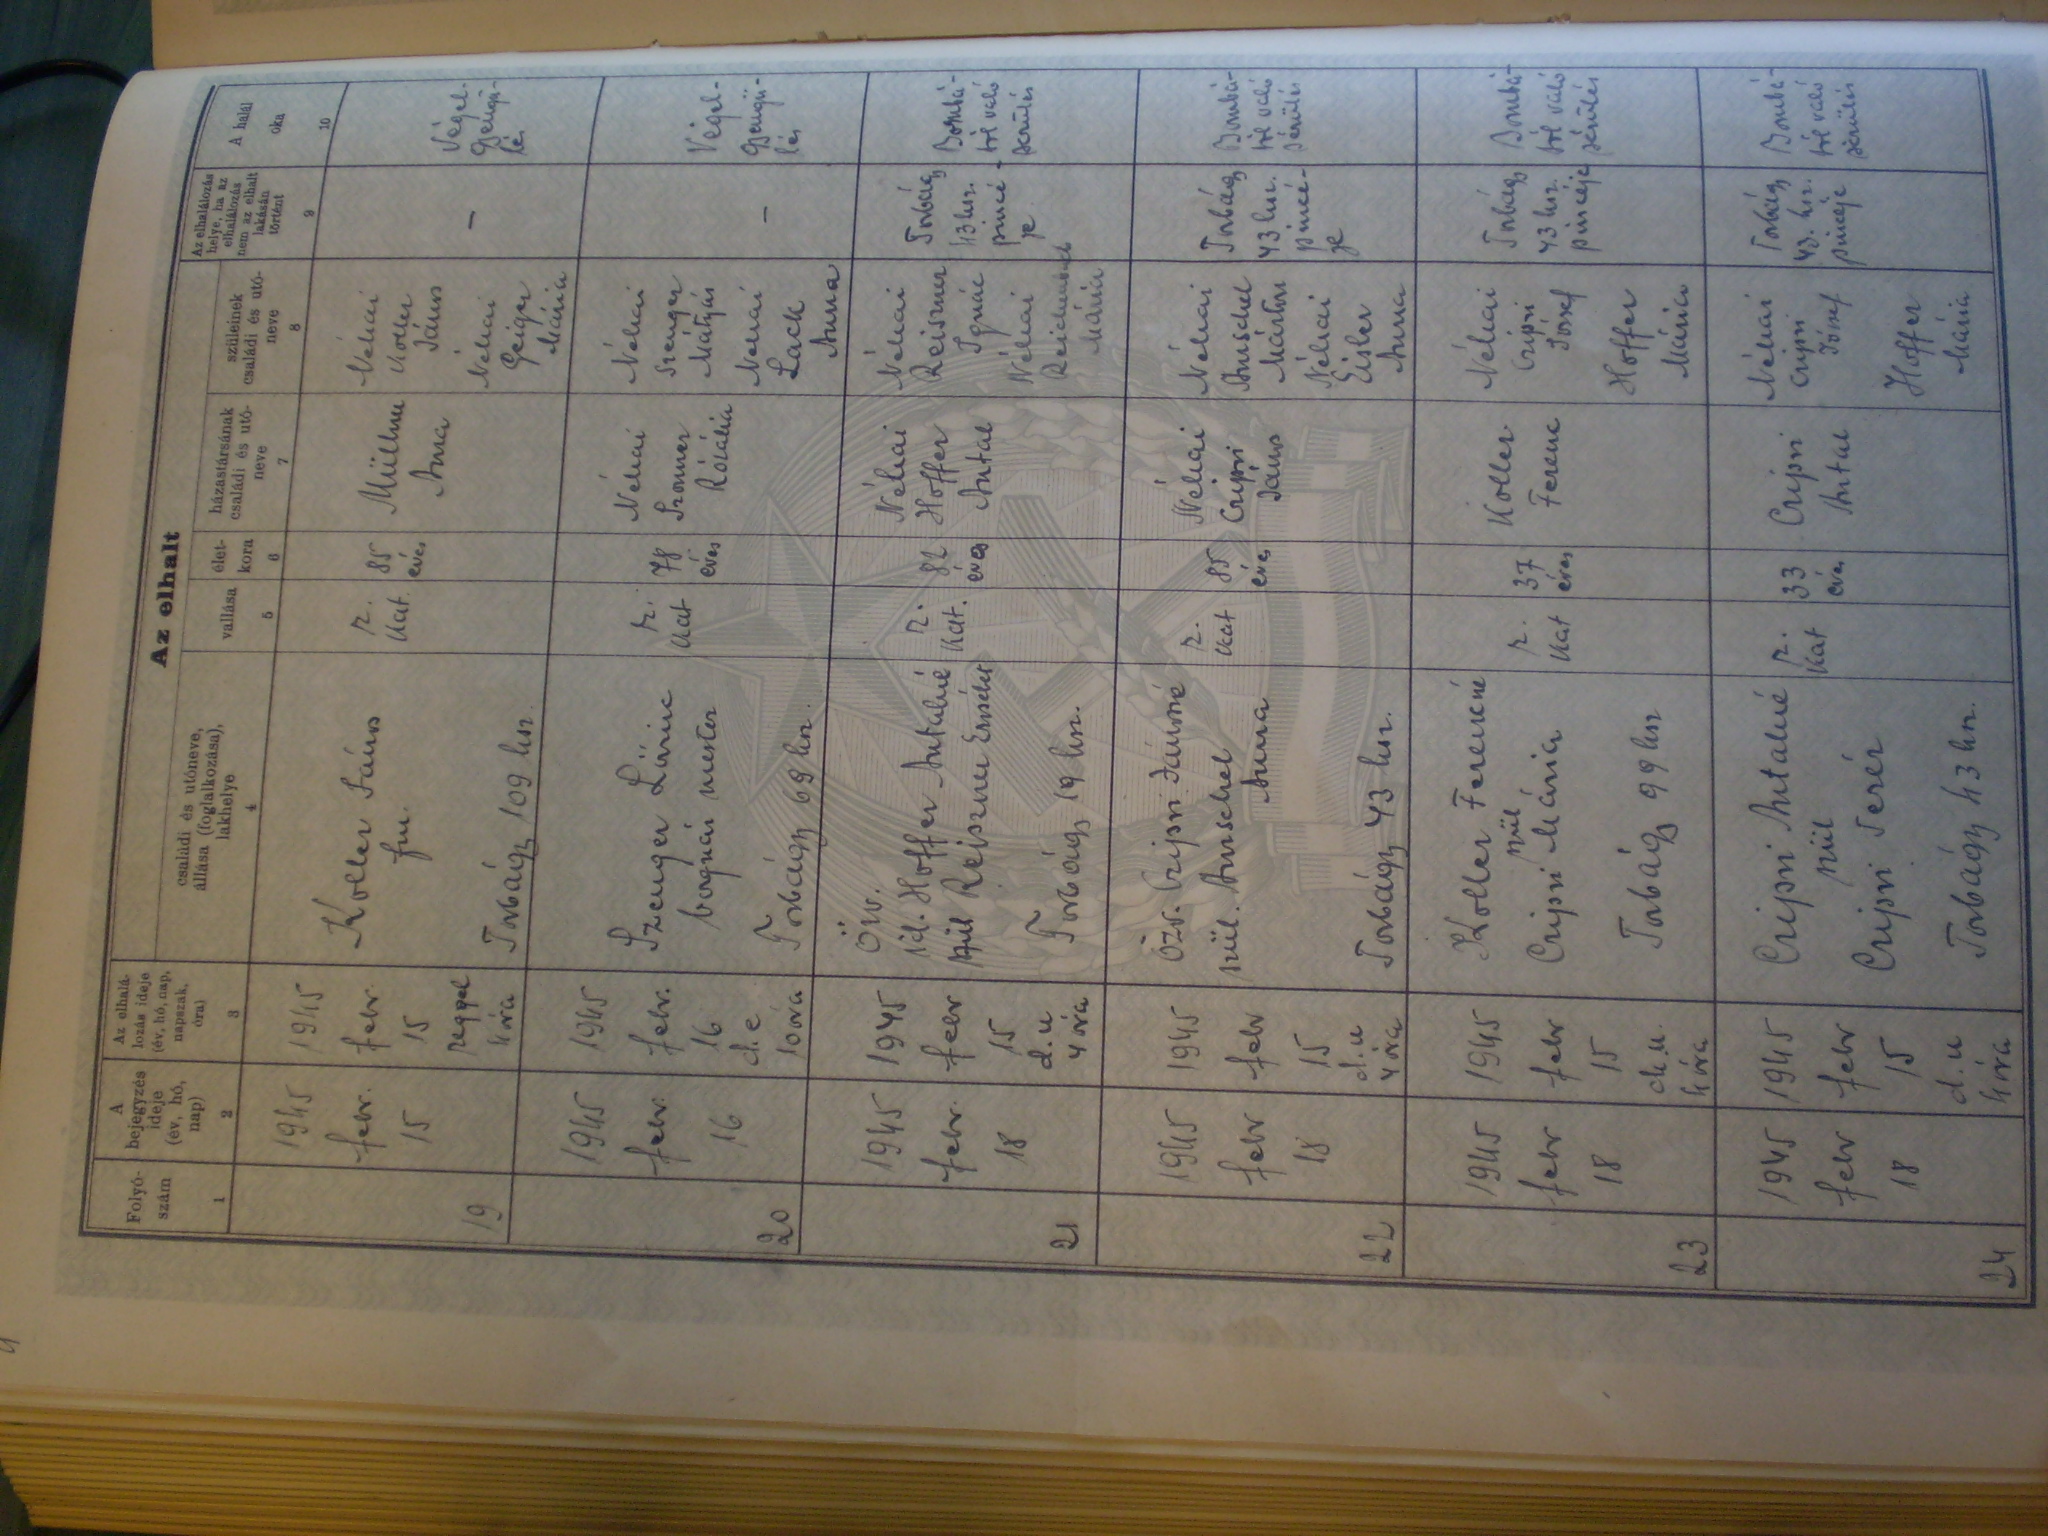 Az elhalt
Folyó-
szám
A
bejegyzés
ideje
(év, hó,
nap)
Az elhalá-
lozás ideje
(év, hó, nap,
napszak,
óra)
családi és utóneve,
állása (foglalkozása),
lakhelye
vallása
élet-
kora
házastársának
családi és utó-
neve
szüleinek
családi és utó-
neve
Az elhalálozás
helye, ha az
elhalálozás
nem az elhalt
lakásán
történt
A halál
oka
1
2
3
4
5
6
7
8
9
10
19
1945
febr.
15
1945
febr.
15
reggel
4 óra
Koller János
fm.
Torbágy 109 hsz.
r.
kat.
85
éves
Anna
Néhai
Koller
János
Néhai
Geiger
Mária
–
Végel-
gyengü-
lé
20
1945
febr.
16
1945
febr.
16
d. e
10 óra
Szenger Lőrinc
bognár mester
Torbágy 69 hsz.
r.
kat
78
éves
Néhai
Szommer
Rozália
Néhai
Szenger
Mátyás
Néhai
Lack
Anna
–
Végel-
gyengü-
lés
21
1945
febr.
18
1945
febr
15
d. u
4 óra
Özv.
id. Hoffer Antalné
szül Reiszner Erzsébet
Torbágy 19 hsz.
r.
kat.
82
éves
Néhai
Hoffer
Antal
Néhai
Reiszner
Ignác
Néhai
Mária
Torbágy
43 hsz.
pincé-
je
Bombá-
tól való
sérülés
22
1945
febr
18
1945
febr
15
d. u
4 óra
Özv. Czipri Jánosné
szül. Amschel
Anna
Torbágy 43 hsz.
r.
kat
85
éves
Néhai
Czipri
János
Néhai
Amschel
Márton
Néhai
Eisler
Anna
Torbágy
43 hsz.
pincé-
je
Bombá-
tól való
sérülés
23
1945
febr
18
1945
febr
15
d. u.
4 óra
Koller Ferencné
szül
Czipri Mária
Torbágy 99 hsz
r.
kat
37
éves
Koller
Ferenc
Néhai
Czipri
József
Hoffer
Mária
Torbágy
43 hsz.
pincéje
Bombá-
tól való
sérülés
24
1945
febr
18
1945
febr
15
d. u
4 óra
Czipri Antalné
szül
Czipri Teréz
Torbágy 43 hsz.
r.
kat
33
éves
Czipri
Antal
Néhai
Czipri
József
Hoffer
Mária
Torbágy
43. hsz.
pincéje
Bombá-
tól való
sérülés